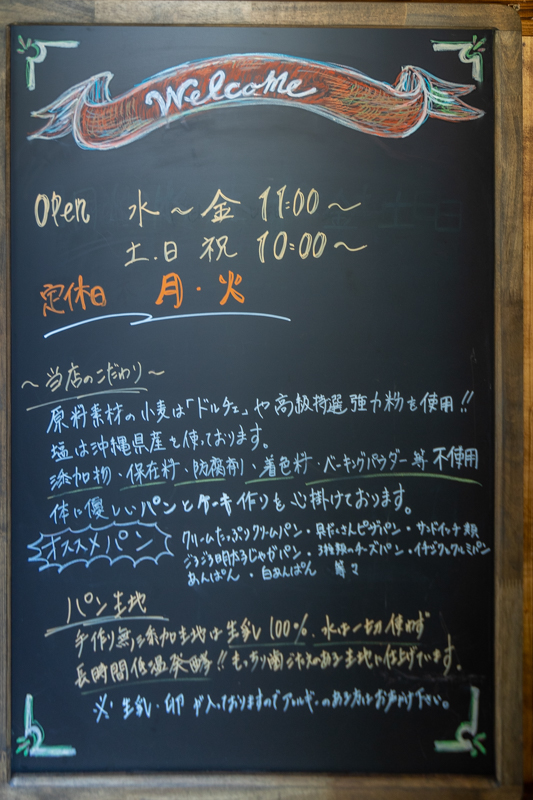 Welcome
Open 水～金 11:00～
土.日 祝 10:00～
定休日 月・火
～当店のこだわり～
原料素材の小麦は「ドルチェ」や高級特選強力粉を使用!!
塩は沖縄県産を使っております。
添加物・保存料・防腐剤・着色料・ベーキングパウダー等不使用
体に優しいパンとケーキ作りを心掛けております。
オススメパン
クリームたっぷりクリームパン・具だくさんピザパン・サンドイッチ類
ごろごろ明太じゃがパン・3種類のチーズパン・イチジクとクルミパン
あんぱん・白あんぱん 等々
パン生地
手作り無添加生地は生乳100%、水は一切使わず
長時間低温発酵!!もっちり歯ごたえのある生地に仕上げています。
※生乳・卵が入っておりますのでアレルギーのある方はお声がけ下さい。